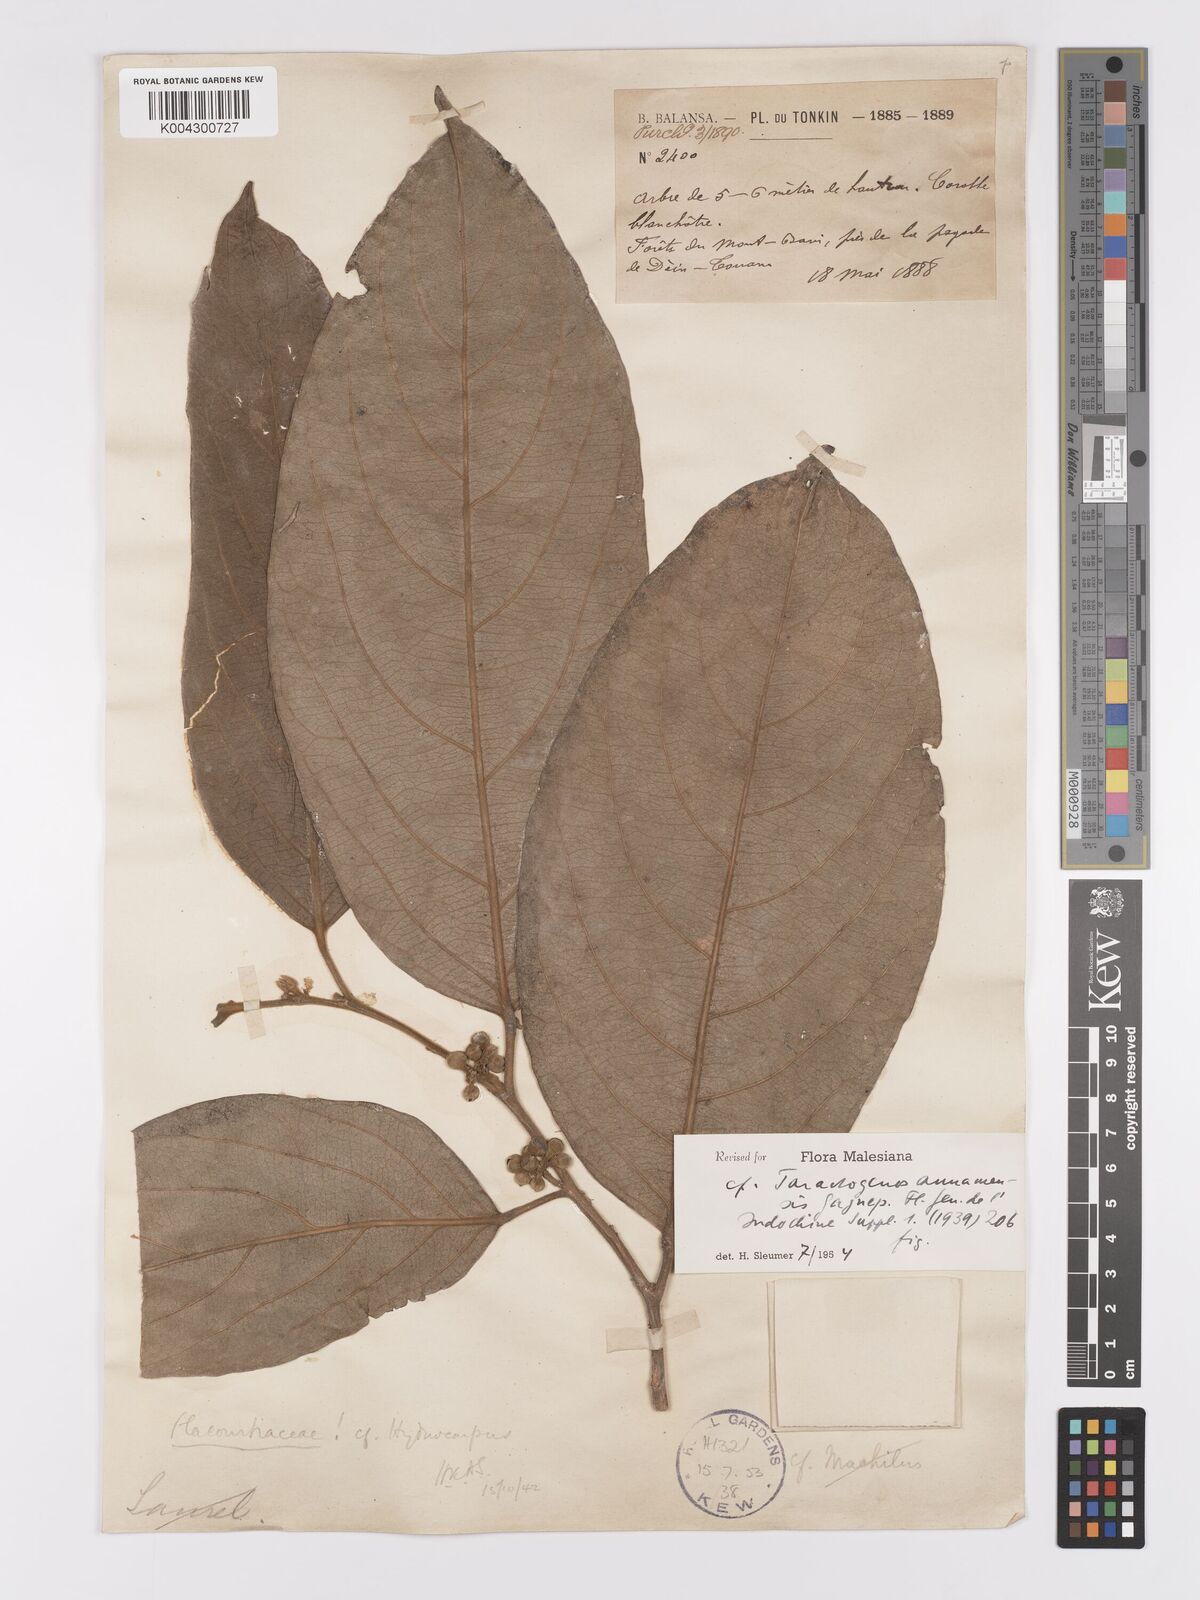 ROYAL BOTANIC GARDENS KEW
K004300727
B. BALANSA. — PL. DU TONKIN — 1885 – 1889
Purchd. 3/1890.
N° 2400
Arbre de 5–6 mètres de hauteur. Corolle
blanchâtre.
Forêts du Mont-Bavi, près de la pagode
de Dèin-Touan
18 mai 1888
Revised for Flora Malesiana
cf. Taraktogenos annamen-
sis Gagnep. Fl. gen. de l'
Indochine Suppl. 1. (1939) 206
fig.
det. H. Sleumer 7/1954
Flacourtiaceae! cf. Hydnocarpus
15/10/42
Laurel.
cf. Machilus
GARDENS
H1321
15.7.53
38
KEW
inches
centimeters
Don Williams
M000928
Kew
Royal Botanic Gardens
copyright reserved
0 1 2 3 4 5 6 7 8 9 10
cm